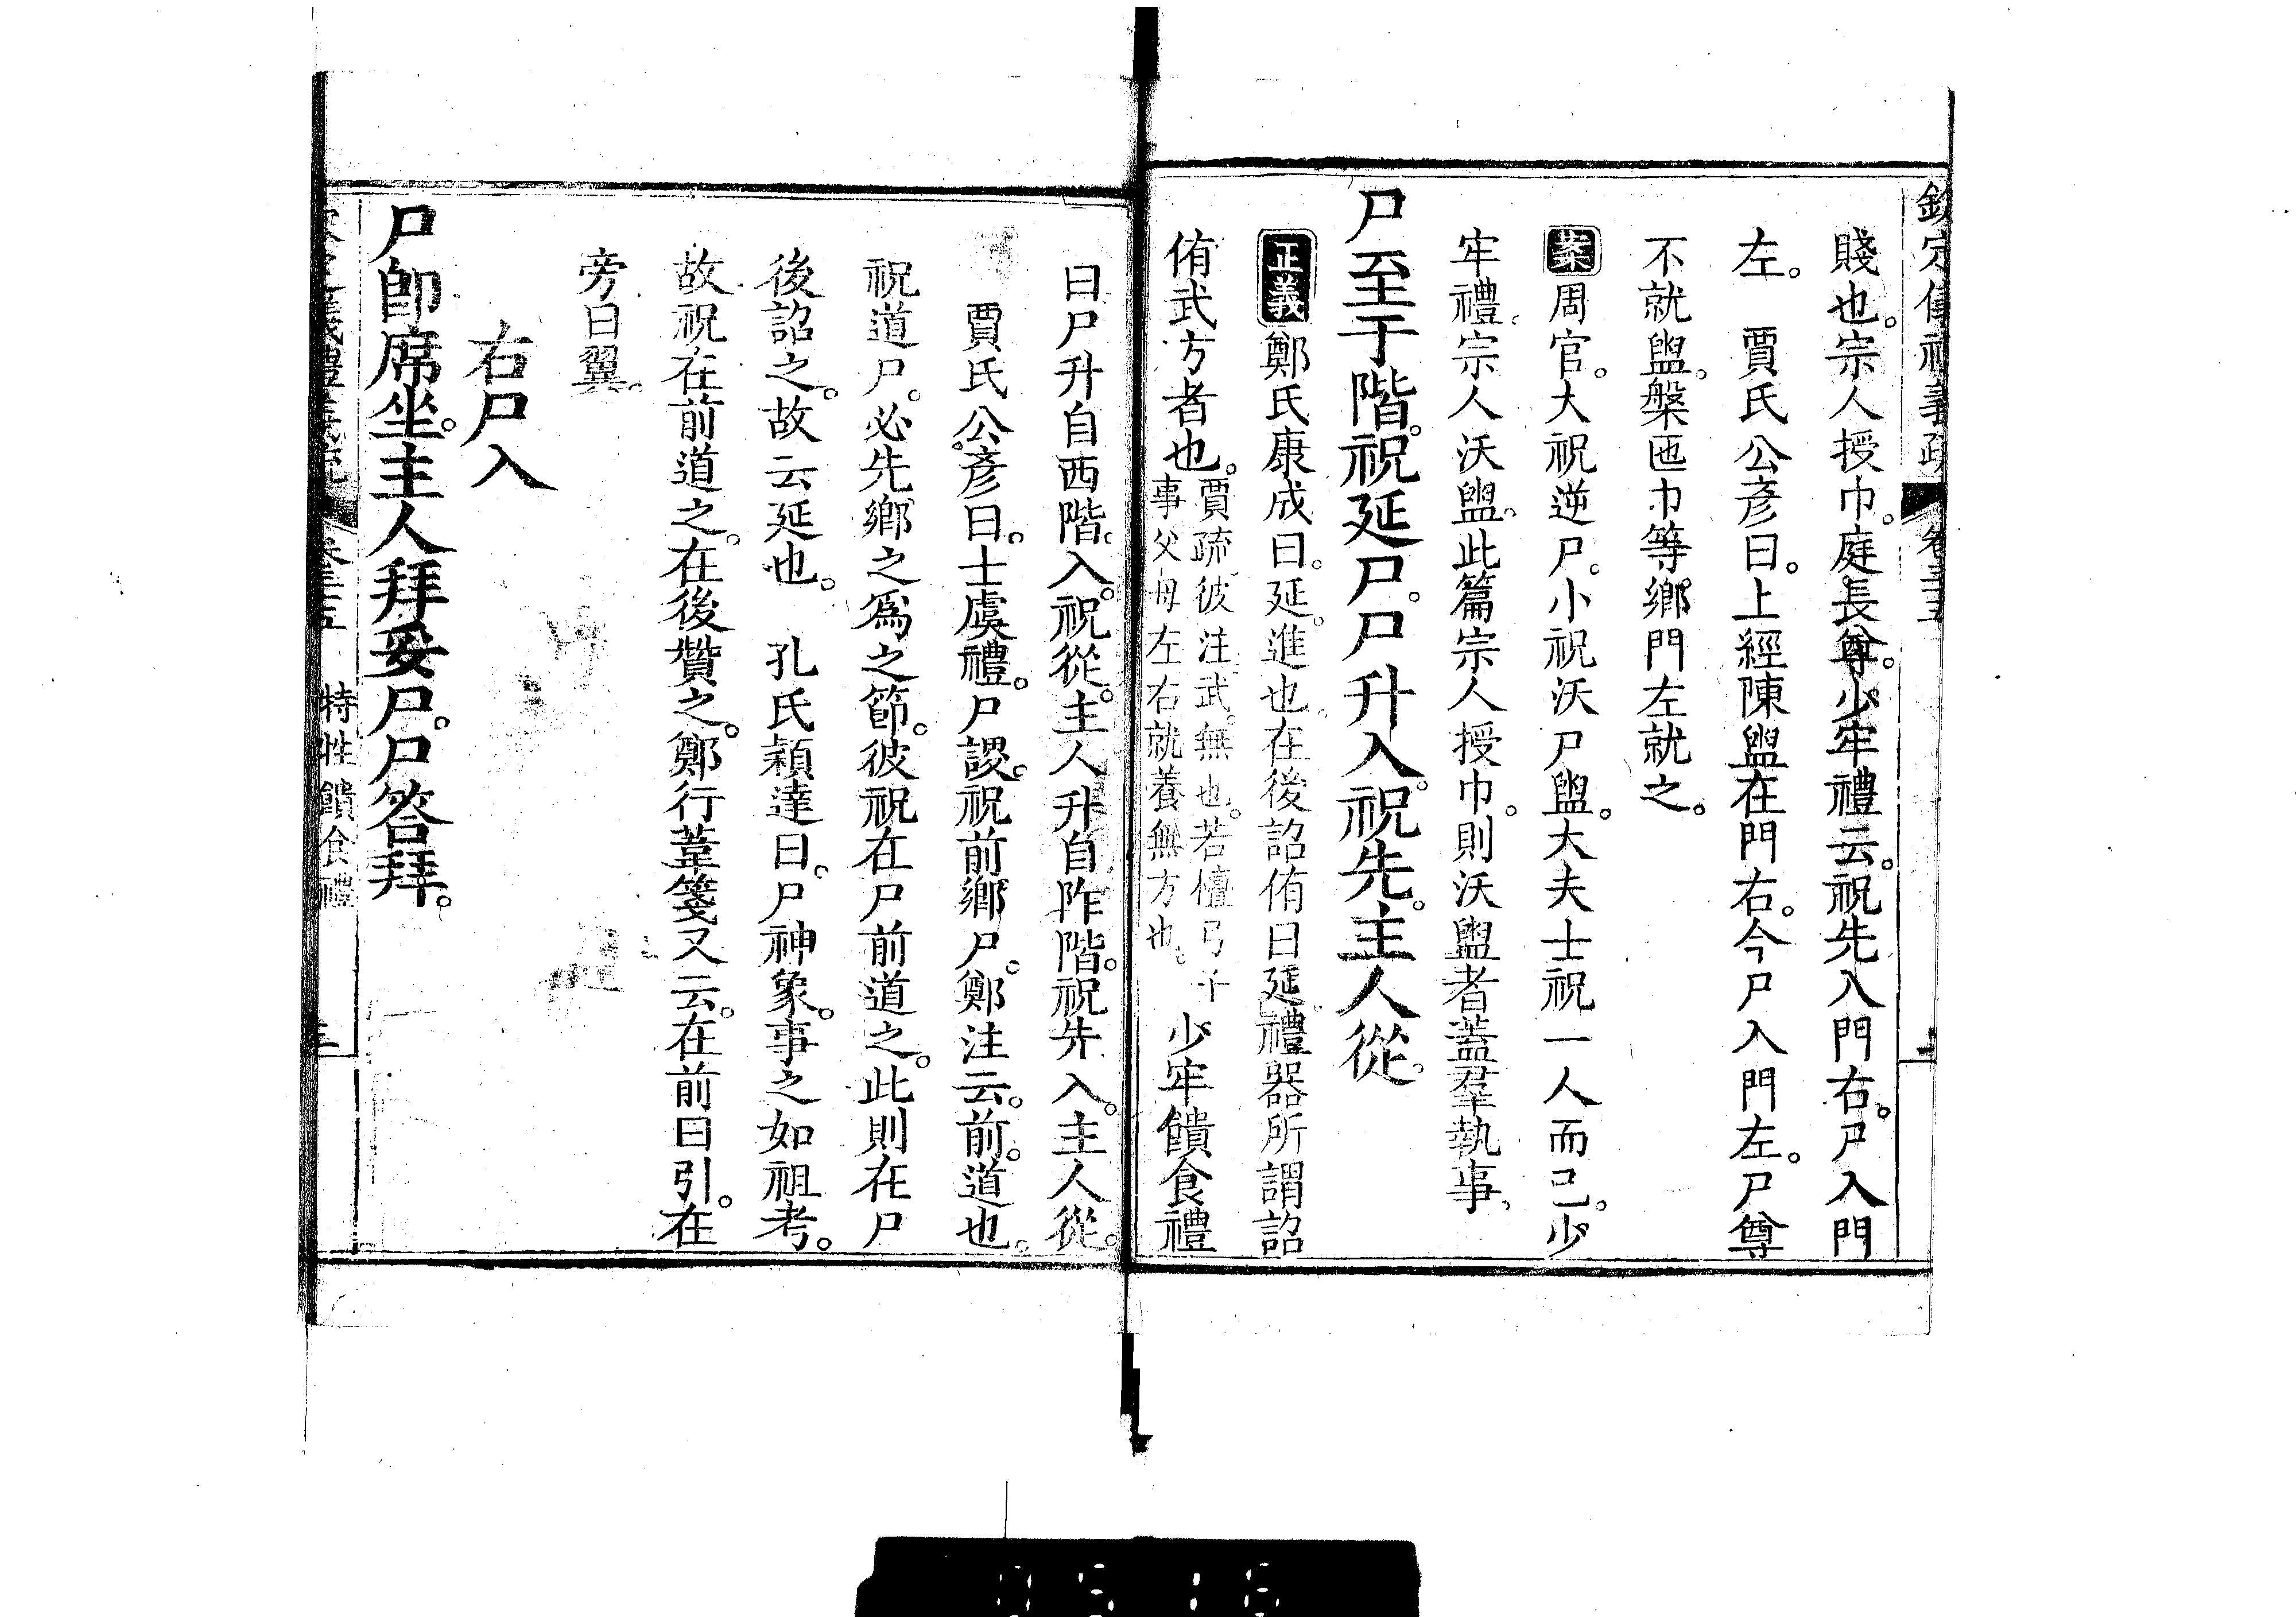 賤也。宗人授巾。庭長尊。少牢禮云。祝先入門右。尸入門
左。　賈氏公彥曰。上經陳盥在門右。今尸入門左。尸尊
不就盥。槃匜巾等。鄉門左就之。
案周官。大祝逆尸。小祝沃尸盥。大夫士祝一人而已。少
牢禮。宗人沃盥。此篇宗人授巾。則沃盥者蓋羣執事、
尸至于階。祝延尸。尸升入。祝先。主人從。
正義鄭氏康成曰。延。進也。在後詔侑曰延。禮器所謂詔
侑武方者也。賈疏彼注武。無也。若檀弓子事父母左右就養無方也。　少牢饋食禮
曰尸升自西階。入。祝從。主人升自阼階。祝先入。主人從。
賈氏公彥曰。士虞禮。尸謖。祝前鄉尸。鄭注云。前。道也。
祝道尸。必先鄉之爲之節。彼祝在尸前道之。此則在尸
後詔之。故云延也。　孔氏穎達曰。尸神象。事之如祖考。
故祝在前道之。在後贊之。鄭行葦箋又云。在前曰引。在
旁曰翼。
右尸入
尸卽席坐。主人拜妥尸。尸答拜。
特牲饋食禮